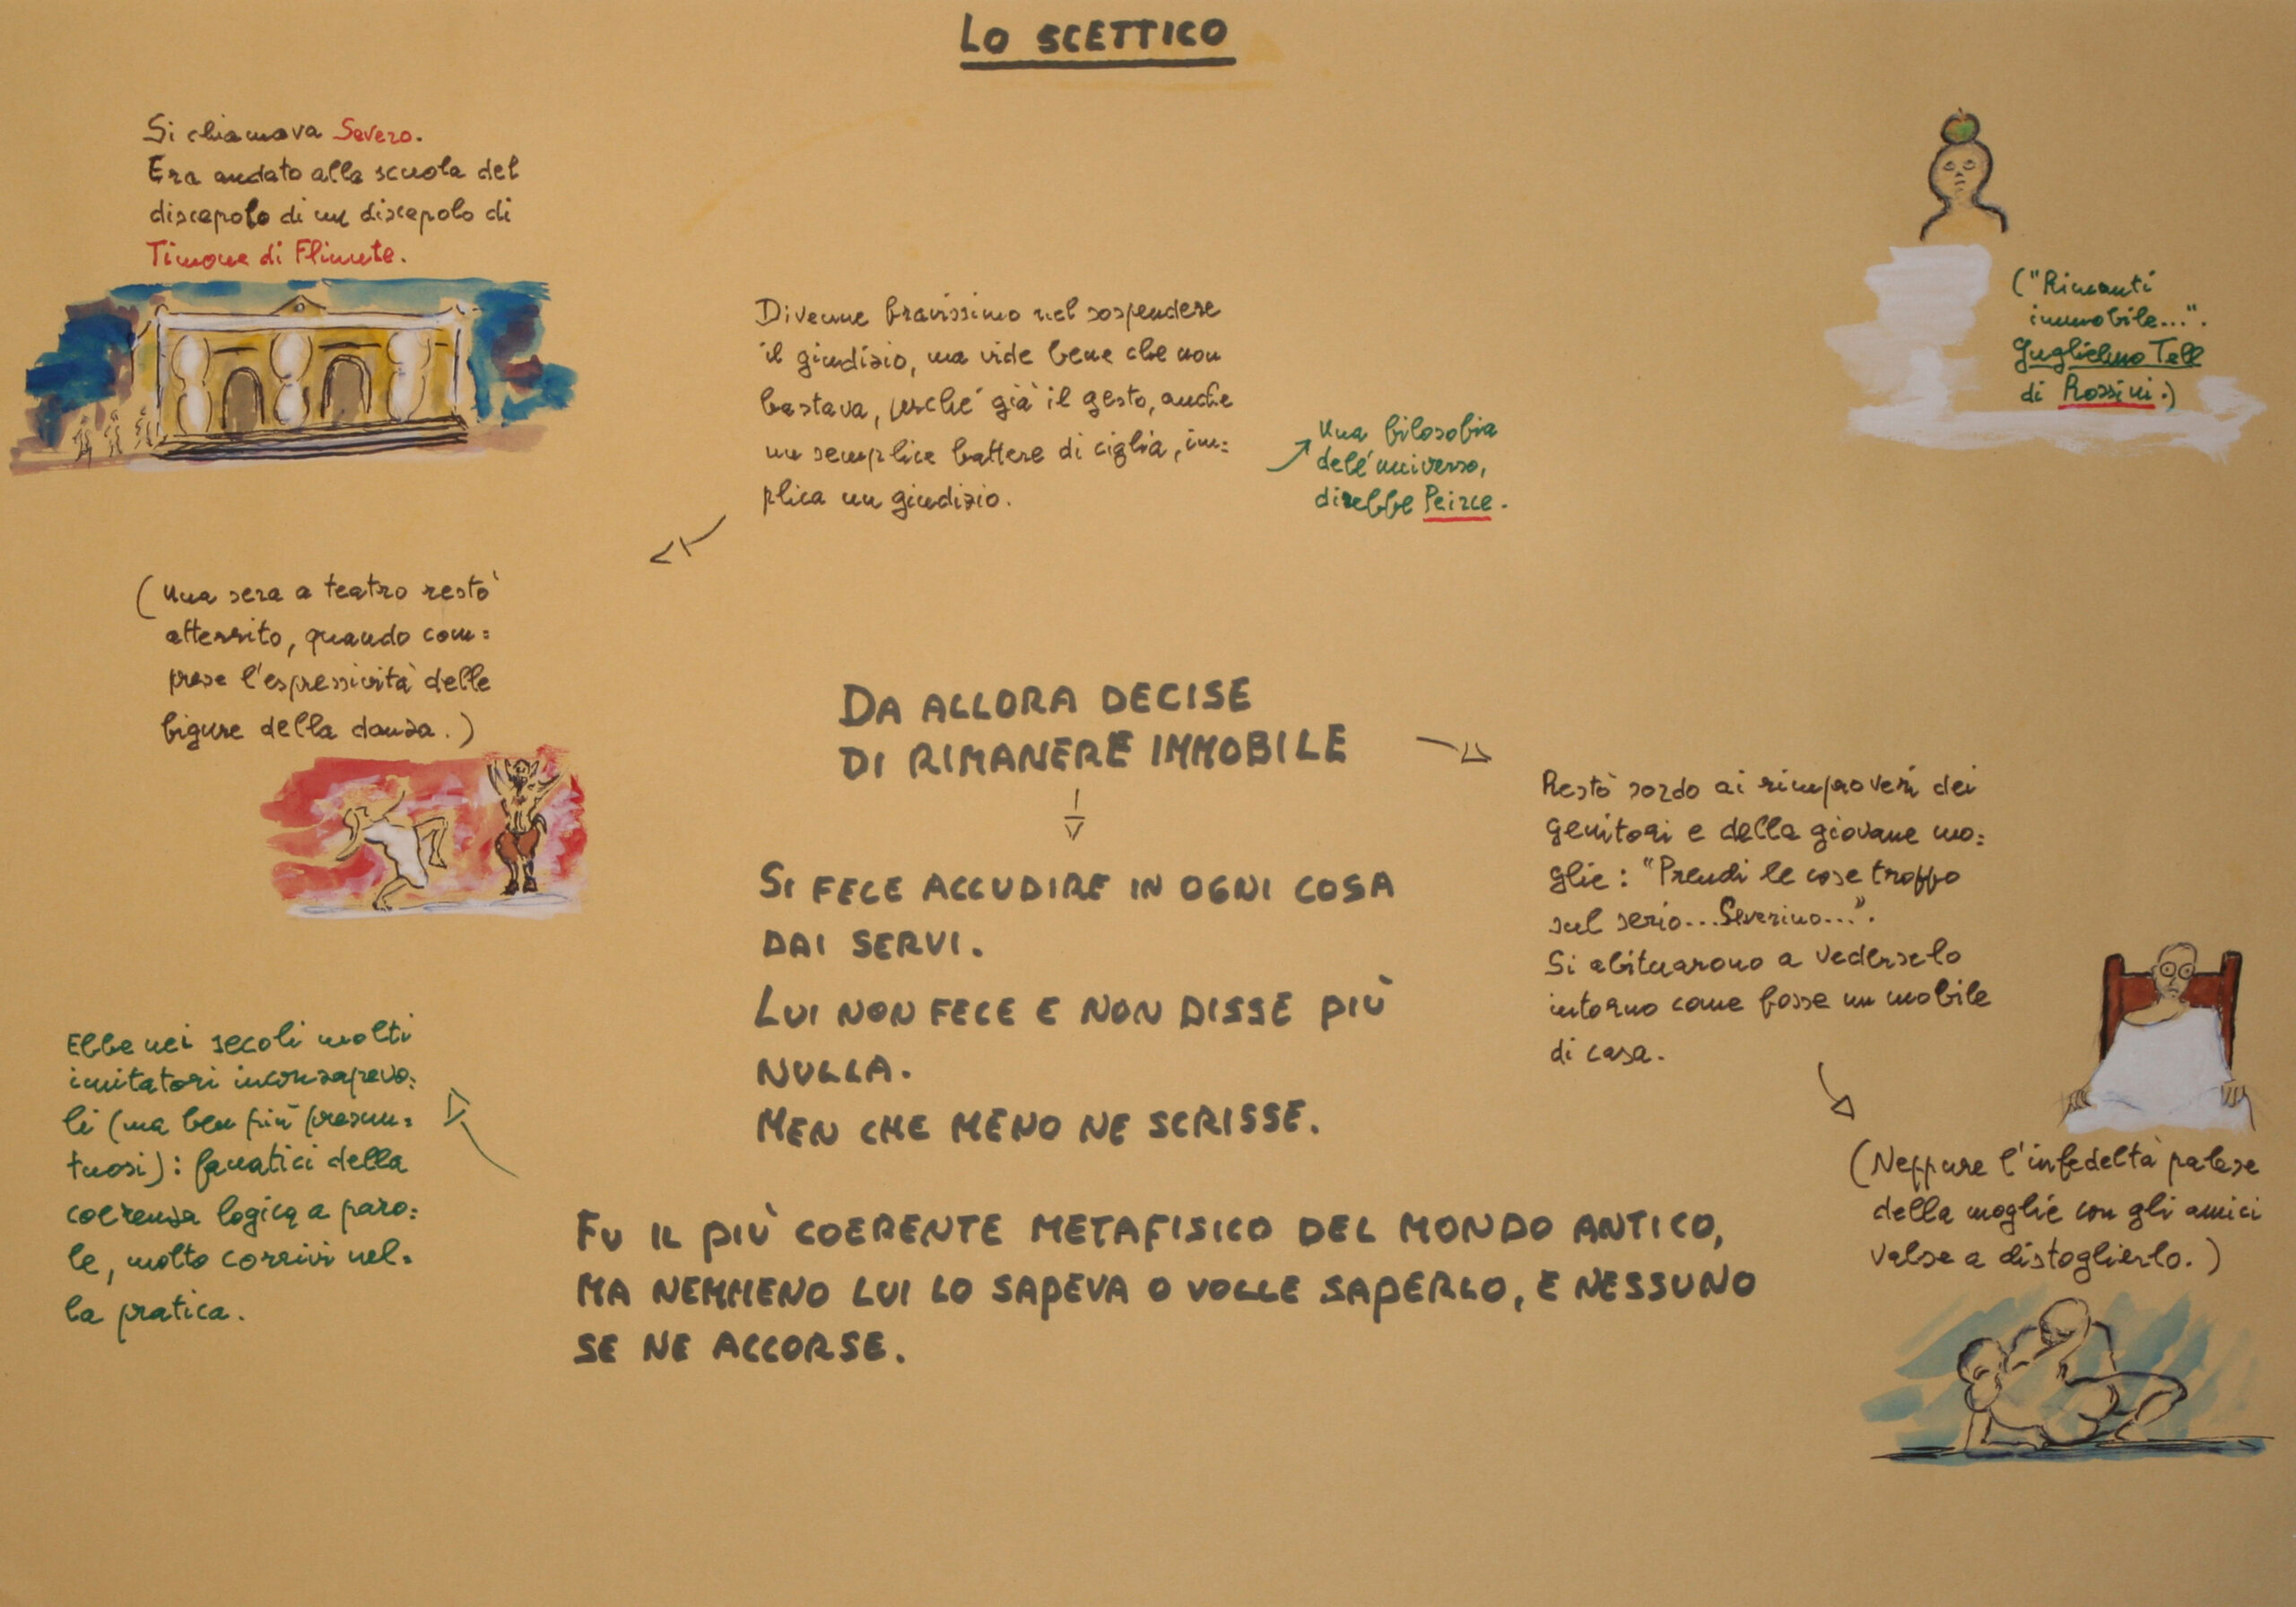 LO SCETTICO
Si chiamava Severo.
Era andato alla scuola del
discepolo di un discepolo di
Timone di Fliunte.
("Rimanti
immobile...".
Guglielmo Tell
di Rossini.)
Divenne bravissimo nel sospendere
il giudizio, ma vide bene che non
bastava, perché già il gesto, anche
un semplice battere di ciglia, im=
plica un giudizio.
Una filosofia
dell'universo,
direbbe Peirce.
(Una sera a teatro restò
atterrito, quando com=
prese l'espressività delle
figure della danza.)
DA ALLORA DECISE
DI RIMANERE IMMOBILE
SI FECE ACCUDIRE IN OGNI COSA
DAI SERVI.
LUI NON FECE E NON DISSE PIÙ
NULLA.
MEN CHE MENO NE SCRISSE.
Restò sordo ai rimproveri dei
genitori e della giovane mo=
glie: "Prendi le cose troppo
sul serio... Severino...".
Si abituarono a vederselo
intorno come fosse un mobile
di casa.
(Neppure l'infedeltà palese
della moglie con gli amici
valse a distoglierlo.)
Ebbe nei secoli molti
imitatori inconsapevo=
li (ma ben più presun=
tuosi): fanatici della
coerenza logica a paro=
le, molto corrivi nel=
la pratica.
FU IL PIÙ COERENTE METAFISICO DEL MONDO ANTICO,
MA NEMMENO LUI LO SAPEVA O VOLLE SAPERLO, E NESSUNO
SE NE ACCORSE.